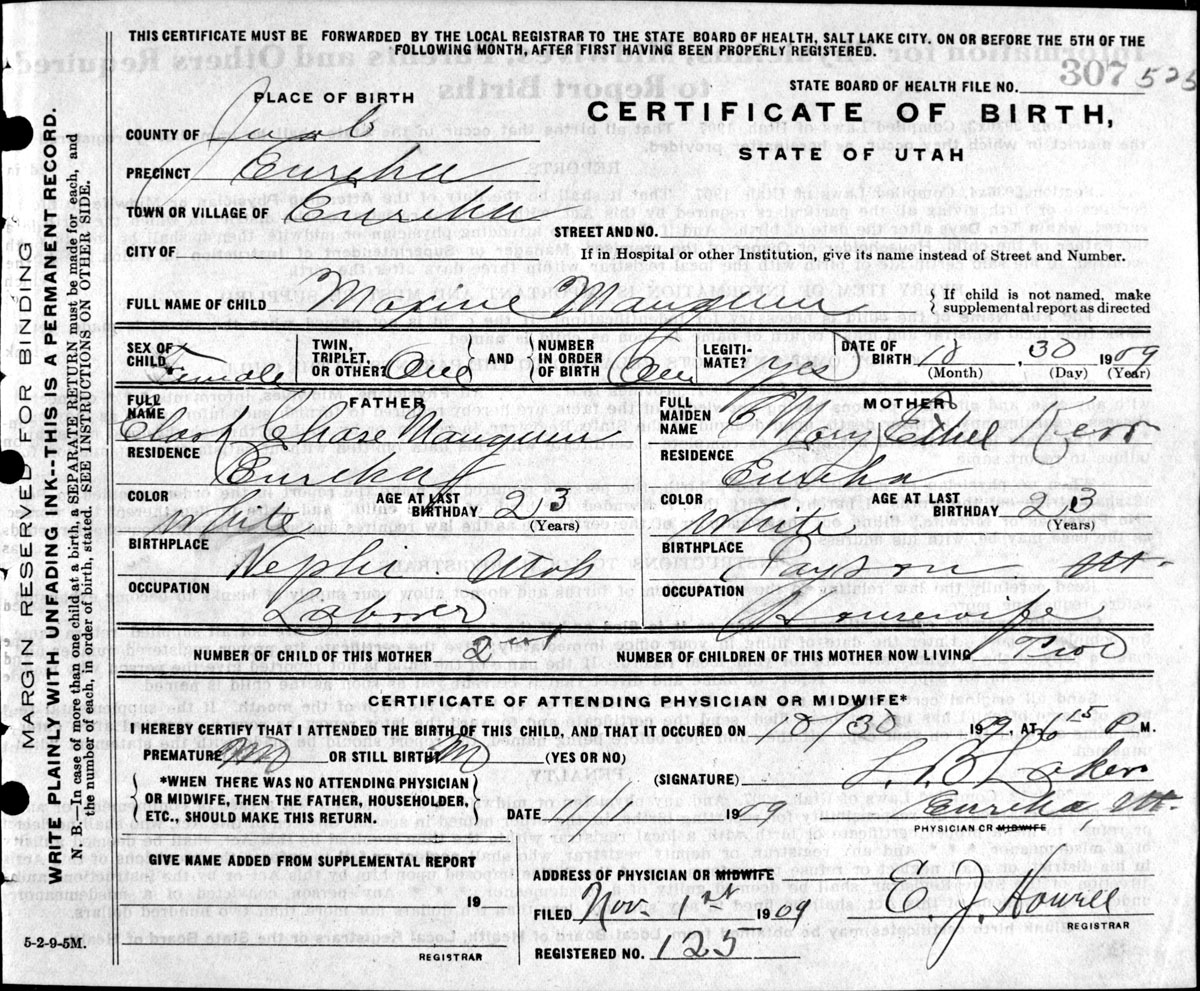 THIS CERTIFICATE MUST BE FORWARDED BY THE LOCAL REGISTRAR TO THE STATE BOARD OF HEALTH, SALT LAKE CITY, ON OR BEFORE THE 5TH OF THE
FOLLOWING MONTH, AFTER FIRST HAVING BEEN PROPERLY REGISTERED.
STATE BOARD OF HEALTH FILE NO. 307 525
PLACE OF BIRTH
CERTIFICATE OF BIRTH,
STATE OF UTAH
COUNTY OF Juab
PRECINCT Eureka
TOWN OR VILLAGE OF Eureka
STREET AND NO.
CITY OF
If in Hospital or other Institution, give its name instead of Street and Number.
FULL NAME OF CHILD Maxine Mangum
If child is not named, make
supplemental report as directed
SEX OF
CHILD Female
TWIN,
TRIPLET,
OR OTHER? One
AND
NUMBER
IN ORDER
OF BIRTH One
LEGITI-
MATE? yes
DATE OF
BIRTH 10, 30 1909
(Month) (Day) (Year)
FATHER
FULL
NAME Clark Chase Mangum
RESIDENCE
Eureka
COLOR White
AGE AT LAST
BIRTHDAY 23
(Years)
BIRTHPLACE
Nephi Utah
OCCUPATION
Laborer
MOTHER
FULL
MAIDEN
NAME Mary Ethel Kerr
RESIDENCE
Eureka
COLOR White
AGE AT LAST
BIRTHDAY 23
(Years)
BIRTHPLACE
Payson Ut.
OCCUPATION
Housewife
NUMBER OF CHILD OF THIS MOTHER 2nd
NUMBER OF CHILDREN OF THIS MOTHER NOW LIVING Two
CERTIFICATE OF ATTENDING PHYSICIAN OR MIDWIFE*
I HEREBY CERTIFY THAT I ATTENDED THE BIRTH OF THIS CHILD, AND THAT IT OCCURED ON 10 30 1909, AT 6 15 P M.
PREMATURE No OR STILL BIRTH? No (YES OR NO)
*WHEN THERE WAS NO ATTENDING PHYSICIAN
OR MIDWIFE, THEN THE FATHER, HOUSEHOLDER,
ETC., SHOULD MAKE THIS RETURN.
(SIGNATURE)
DATE 11 1 1909
Eureka, Ut.
PHYSICIAN OR MIDWIFE
GIVE NAME ADDED FROM SUPPLEMENTAL REPORT
19
REGISTRAR
ADDRESS OF PHYSICIAN OR MIDWIFE
FILED Nov. 1st 1909
E. J. Howell
REGISTRAR
REGISTERED NO. 125
5-2-9-5M.
MARGIN RESERVED FOR BINDING
WRITE PLAINLY WITH UNFADING INK--THIS IS A PERMANENT RECORD.
N. B.--In case of more than one child at a birth, a SEPARATE RETURN must be made for each, and
the number of each, in order of birth, stated. SEE INSTRUCTIONS ON OTHER SIDE.